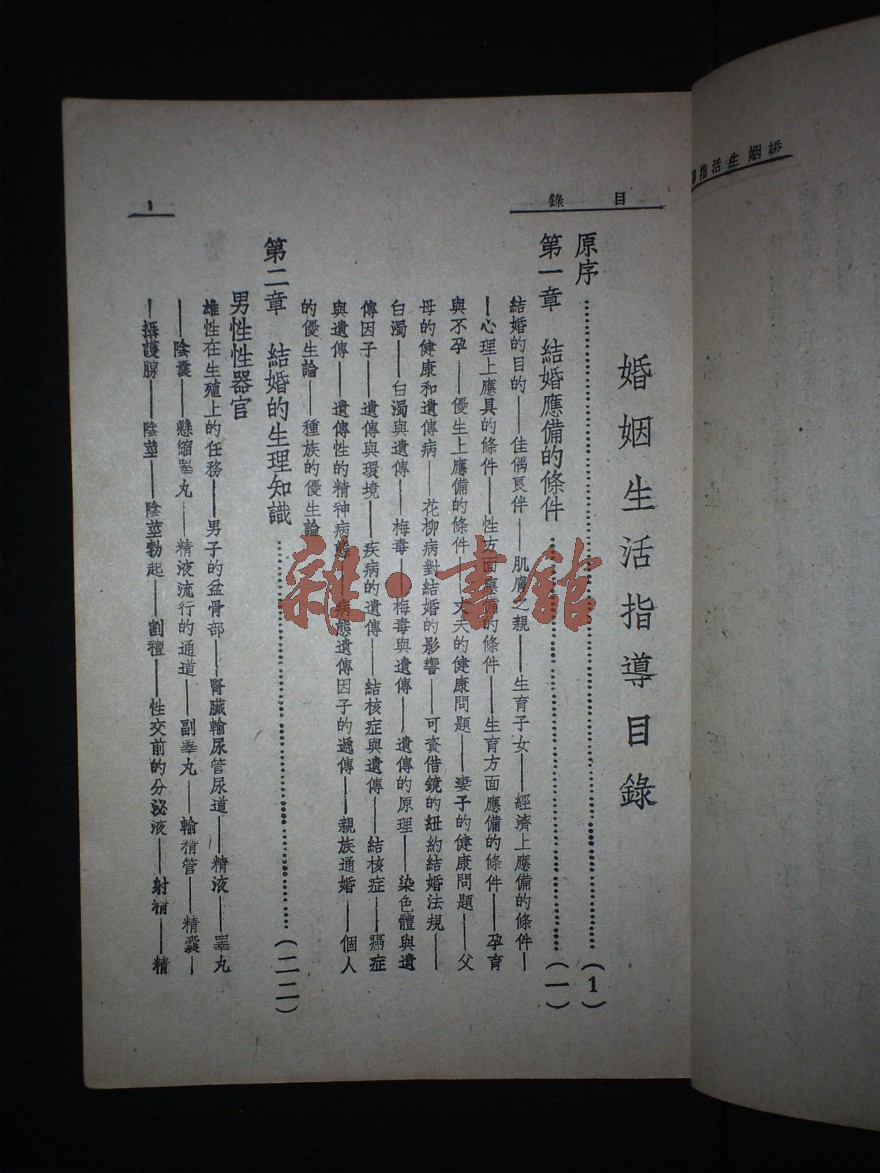 婚姻生活指
目錄
婚姻生活指導目錄
原序……(1)
第一章 結婚應備的條件……(一)
結婚的目的——佳偶良伴——肌膚之親——生育子女——經濟上應備的條件—
—心理上應具的條件——性方面應備的條件——生育方面應備的條件——孕育
與不孕——優生上應備的條件——丈夫的健康問題——妻子的健康問題——父
母的健康和遺傳病——花柳病對結婚的影響——可資借鏡的紐約結婚法規——
白濁——白濁與遺傳——梅毒——梅毒與遺傳——遺傳的原理——染色體與遺
傳因子——遺傳與環境——疾病的遺傳——結核症與遺傳——結核症——癌症
與遺傳——遺傳性的精神病態——病態遺傳因子的遞傳——親族通婚——個人
的優生論——種族的優生論
第二章 結婚的生理知識……(二二)
男性性器官
雄性在生殖上的任務——男子的盆骨部——腎臟輸尿管尿道——精液——睪丸
——陰囊——懸縮睪丸——精液流行的通道——副睪丸——輸精管——精囊—
—攝護腺——陰莖——陰莖勃起——割禮——性交前的分泌液——射精——精
1
雜·書館